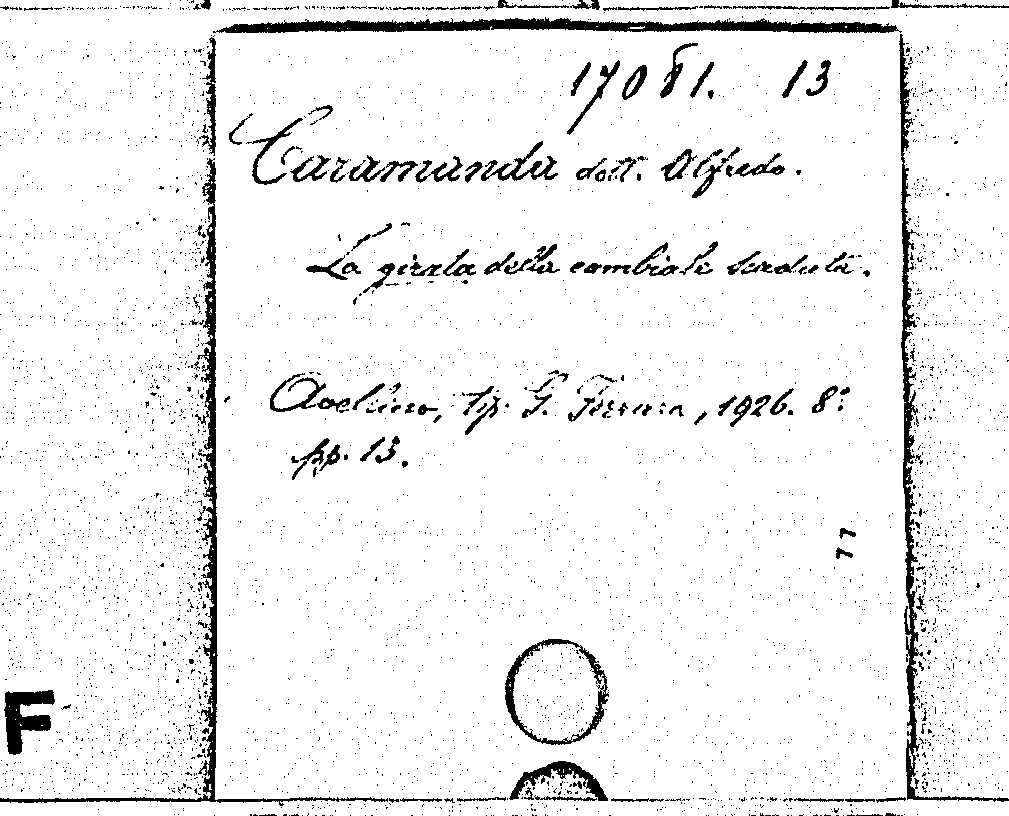 17081. 13
Caramanda dott. Alfredo.
La girata della cambiale scaduta.
Avellino, tip. G. Ferrara, 1926. 8°.
pp. 13.
77
F